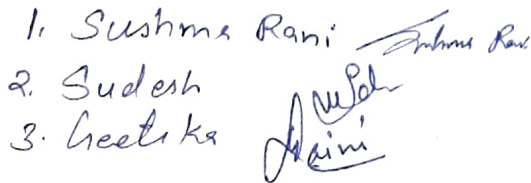 1. Sushma Rani Sushma Rani
2. Sudesh
3. Geetika Saini